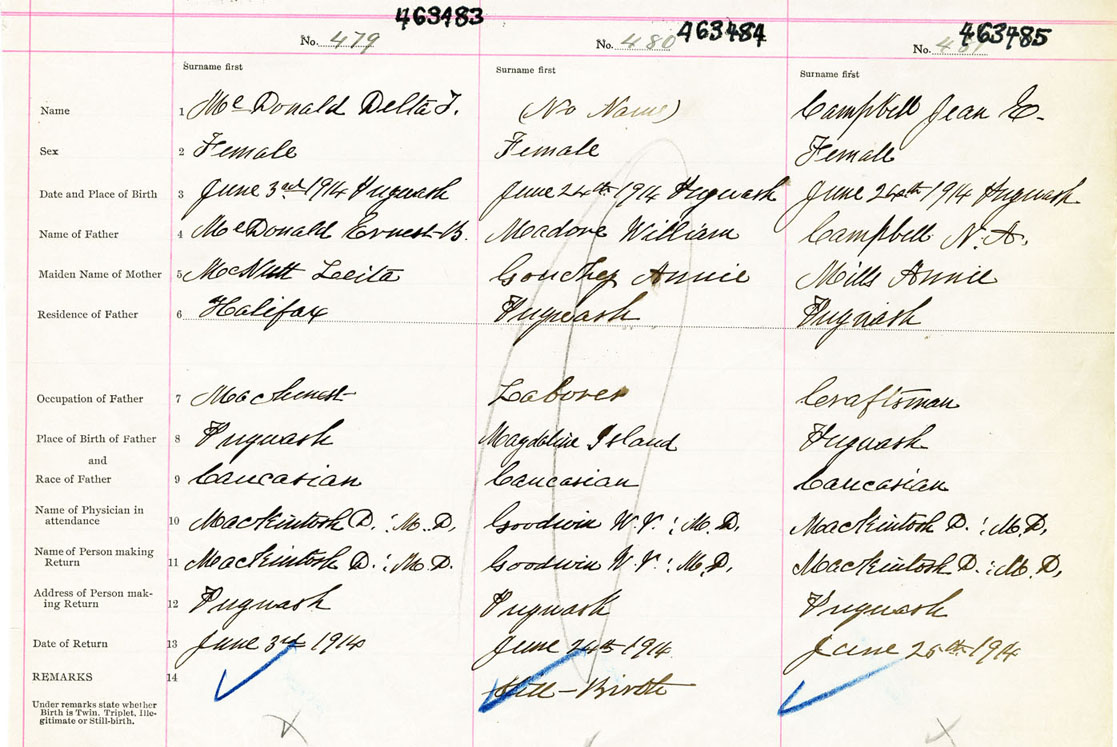 463483 463484 463485
No. 479 No. 480 No.
Surname first Surname first Surname first
Name 1 McDonald Delta F. (No Name) Campbell Jean E.
Sex 2 Female Female Female
Date and Place of Birth 3 June 3rd 1914 Pugwash June 24th 1914 Pugwash June 26th 1914 Pugwash
Name of Father 4 McDonald Ernest B. Madore William Campbell N. A.
Maiden Name of Mother 5 McNutt Leeita Annie Mills Annie
Residence of Father 6 Halifax Pugwash Pugwash
Occupation of Father 7 Machinest Laborer Craftsman
Place of Birth of Father 8 Pugwash Magdeline Island Pugwash
and
Race of Father 9 Caucasian Caucasian Caucasian
Name of Physician in
attendance 10 MacKintosh D. : M.D. Goodwin W.V : M.D. MacKintosh D. : M.D.
Name of Person making
Return 11 MacKintosh D. : M.D. Goodwin W.V : M.D. MacKintosh D. : M.D.
Address of Person mak-
ing Return 12 Pugwash Pugwash Pugwash
Date of Return 13 June 3rd 1914 June 24th 1914 June 26th 1914
REMARKS 14 Still-Birth
Under remarks state whether
Birth is Twin, Triplet, Ille-
gitimate or Still-birth.